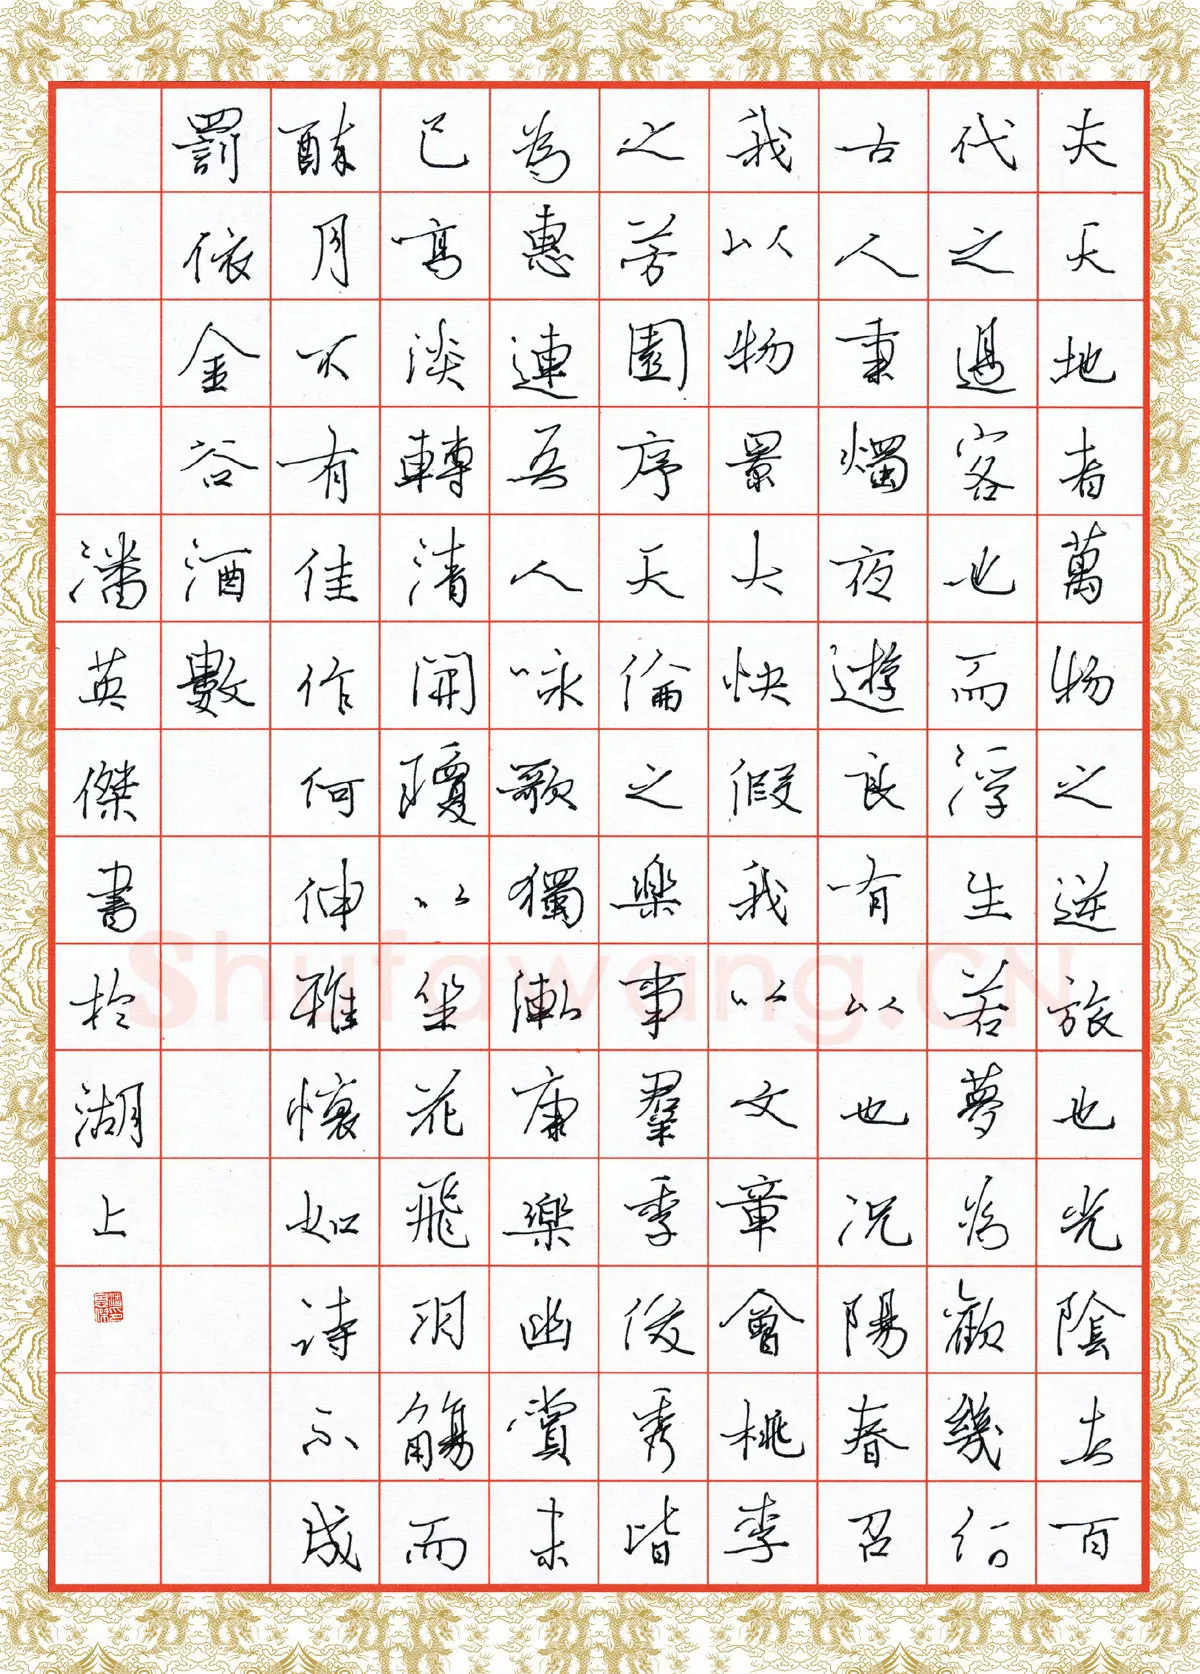 夫天地者萬物之逆旅也光陰者百
代之過客也而浮生若夢為歡幾何
古人秉燭夜遊良有以也況陽春召
我以物景大快假我以文章會桃李
之芳園序天倫之樂事羣季俊秀皆
為惠連吾人咏歌獨漸康樂幽賞未
已高淡轉清開瓊以坐花飛羽觴而
醉月不有佳作何伸雅懷如詩不成
罰依金谷酒數
潘英傑書於湖上
Shufawang.CN